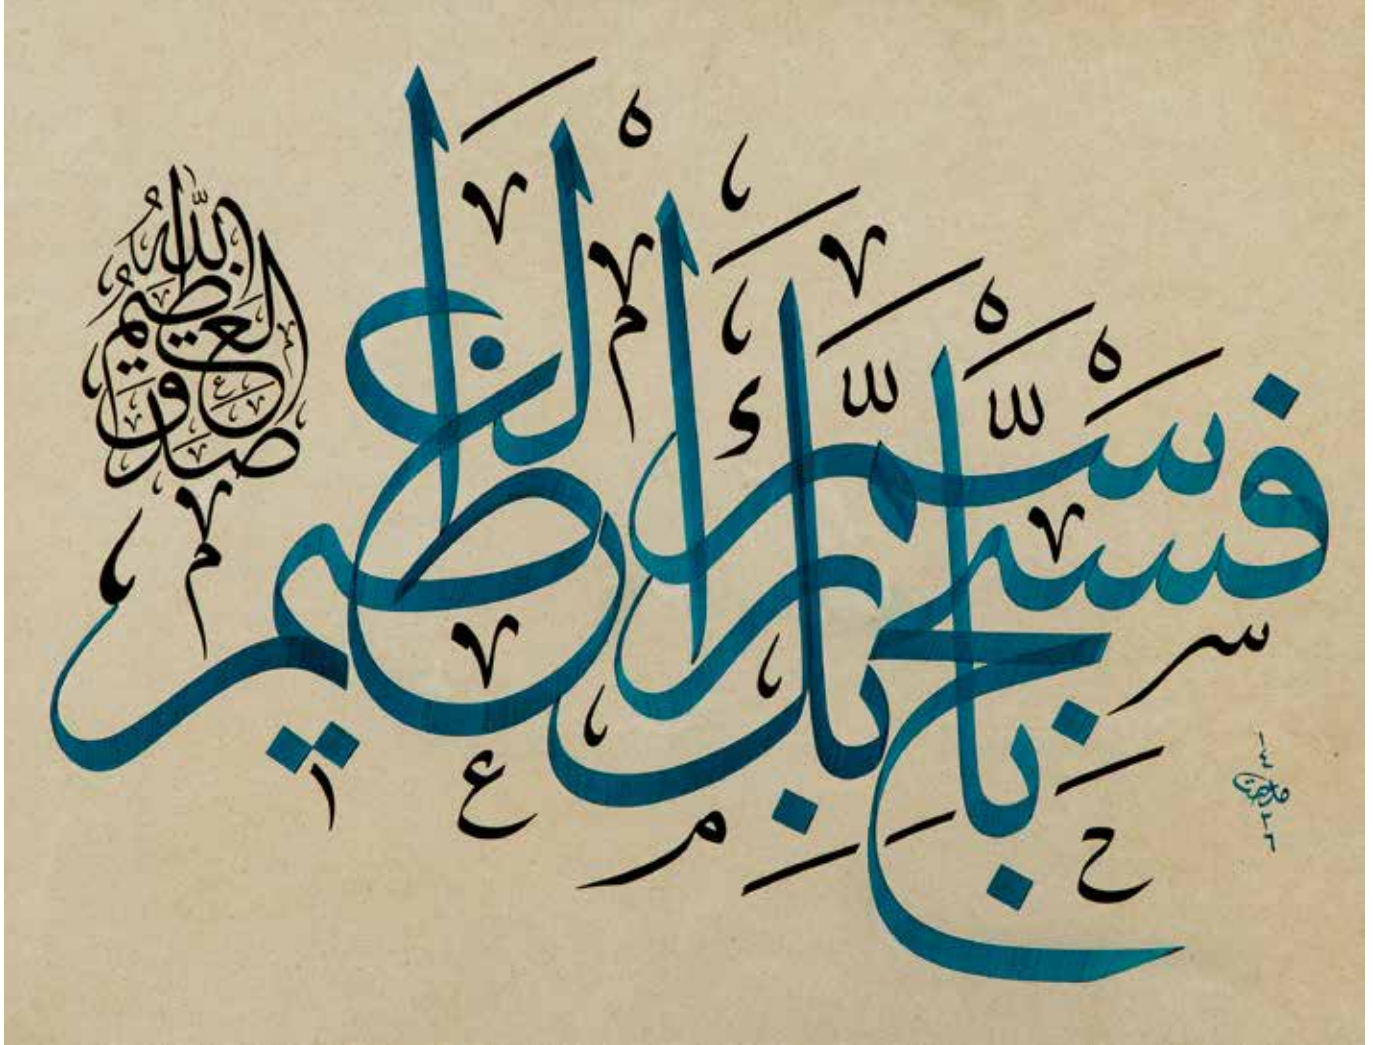 فَسَبِّحْ بِاسْمِ رَبِّكَ الْعَظِيمِ
صَدَقَ اللهُ الْعَظِيمُ
١٤٢٦